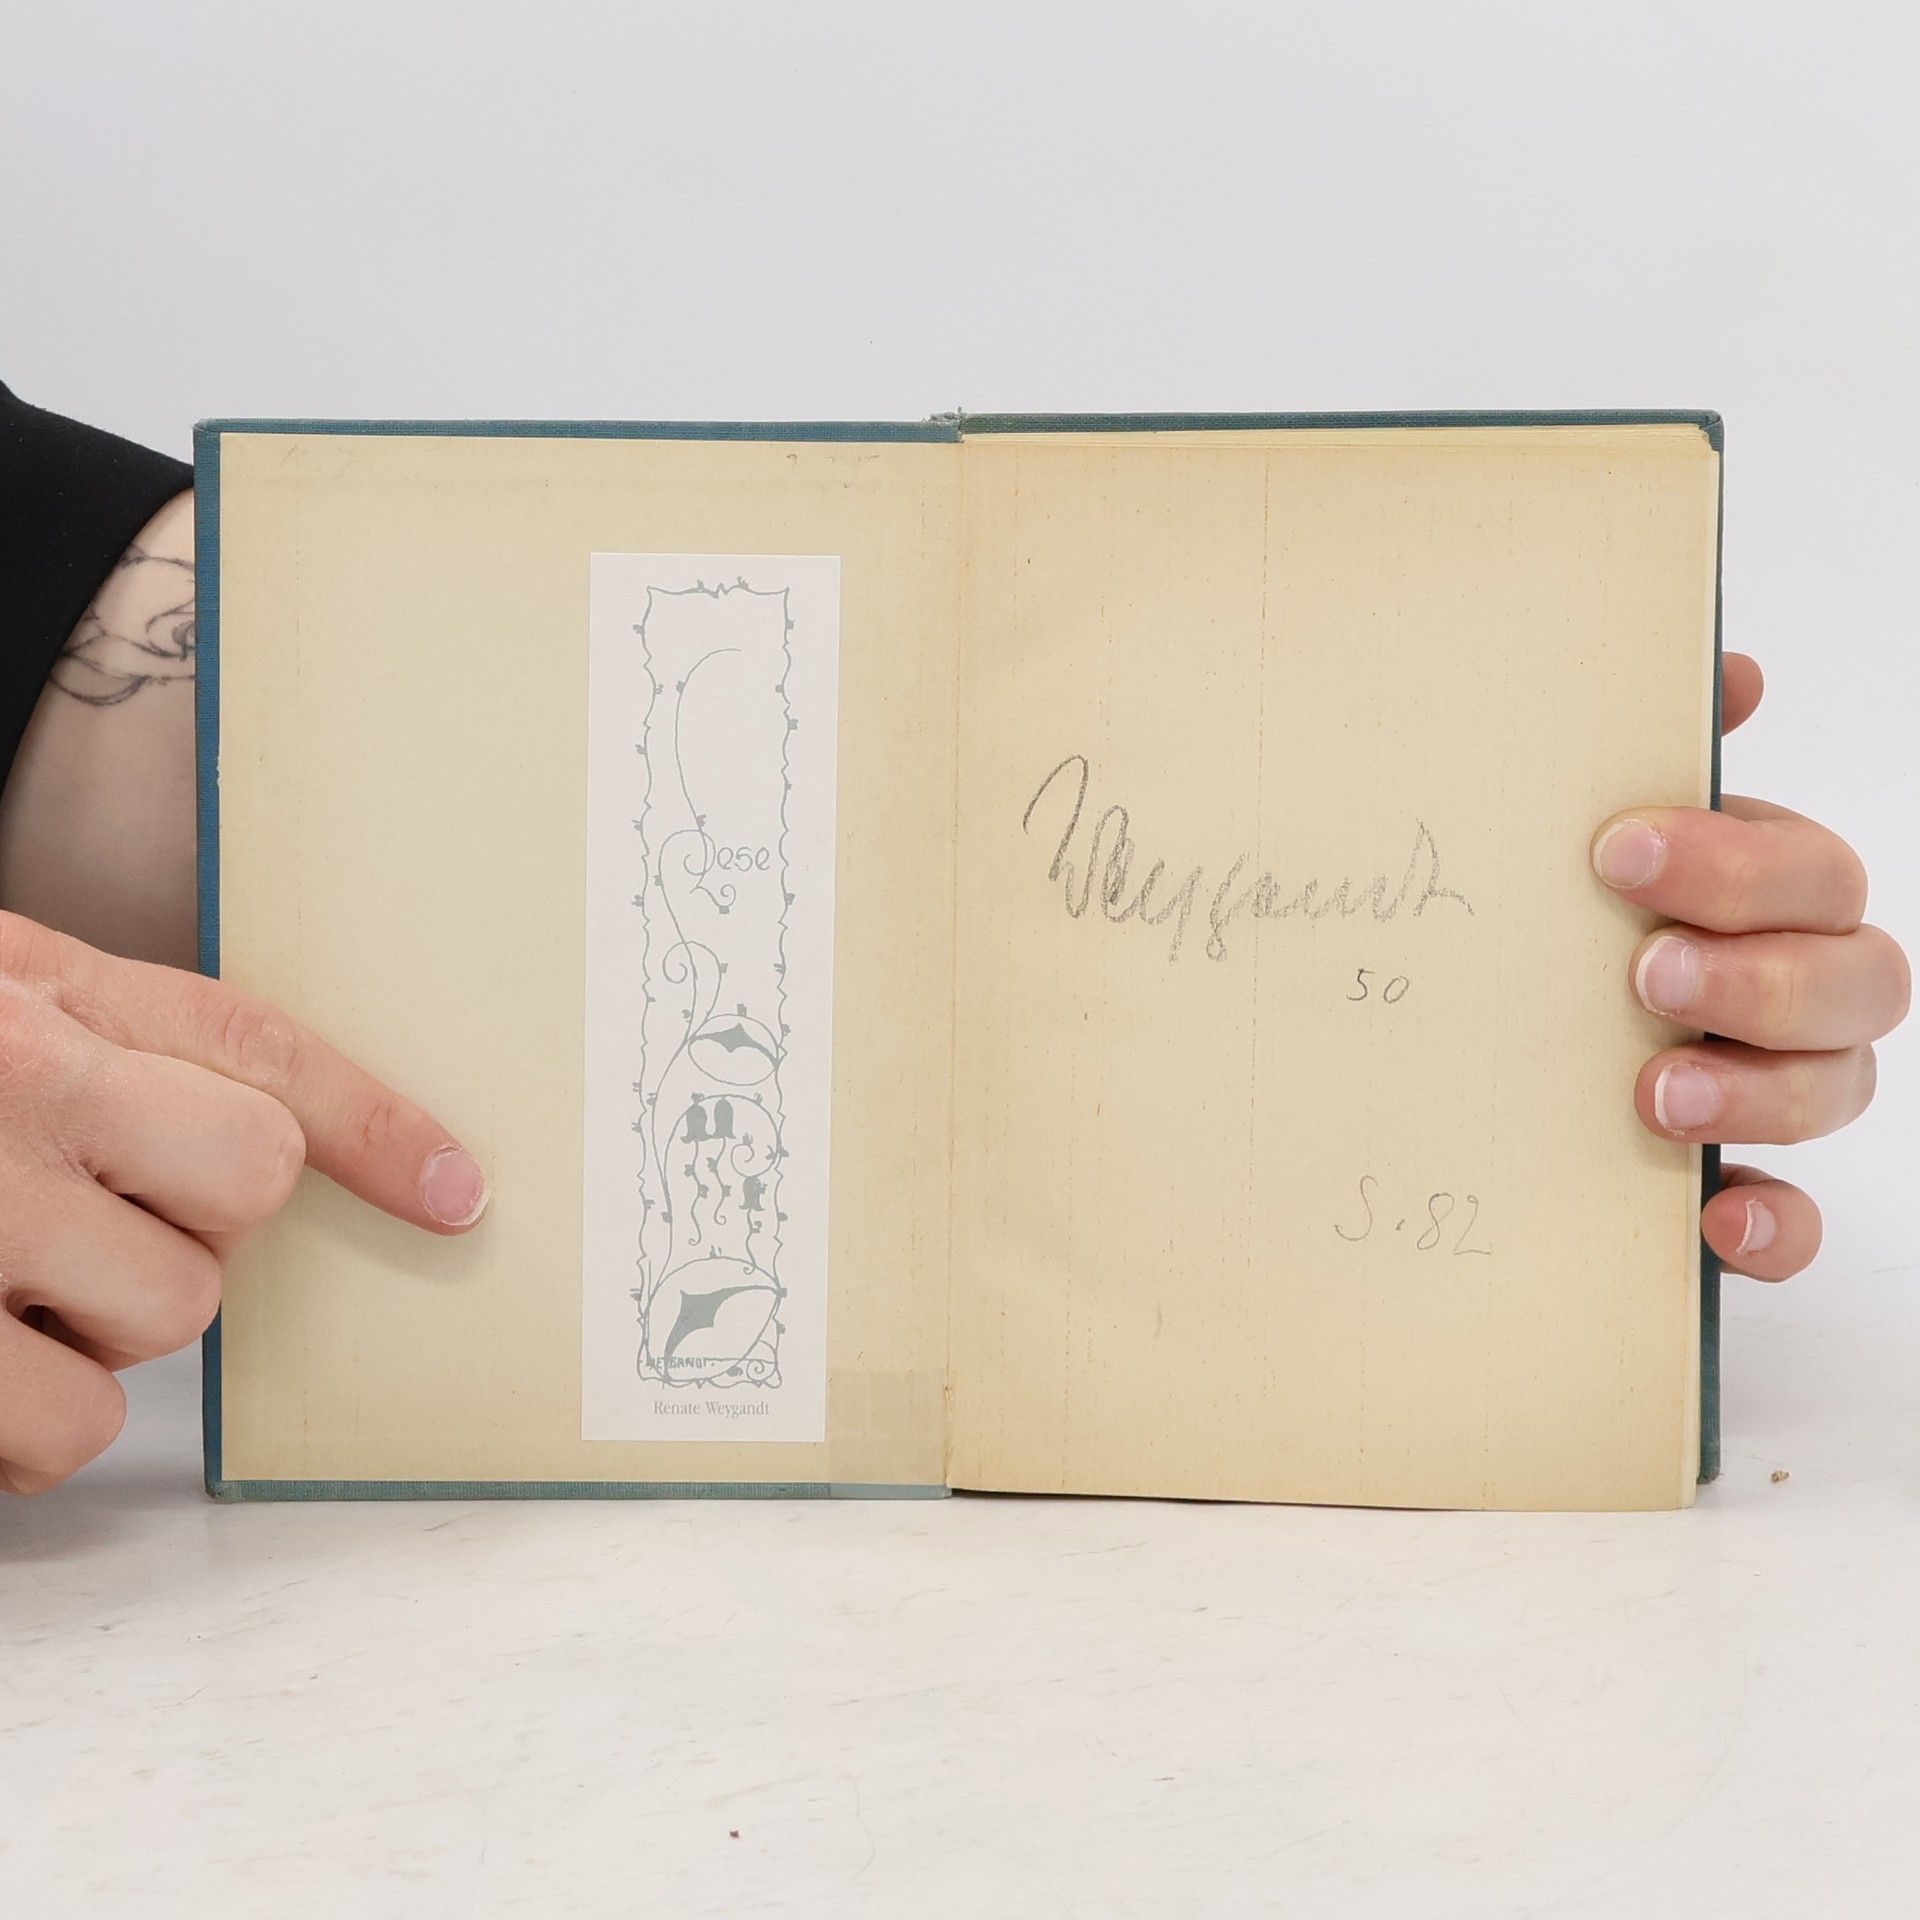 Lese
WEYGANDT
Renate Weygandt
Weygandt
50
S. 82